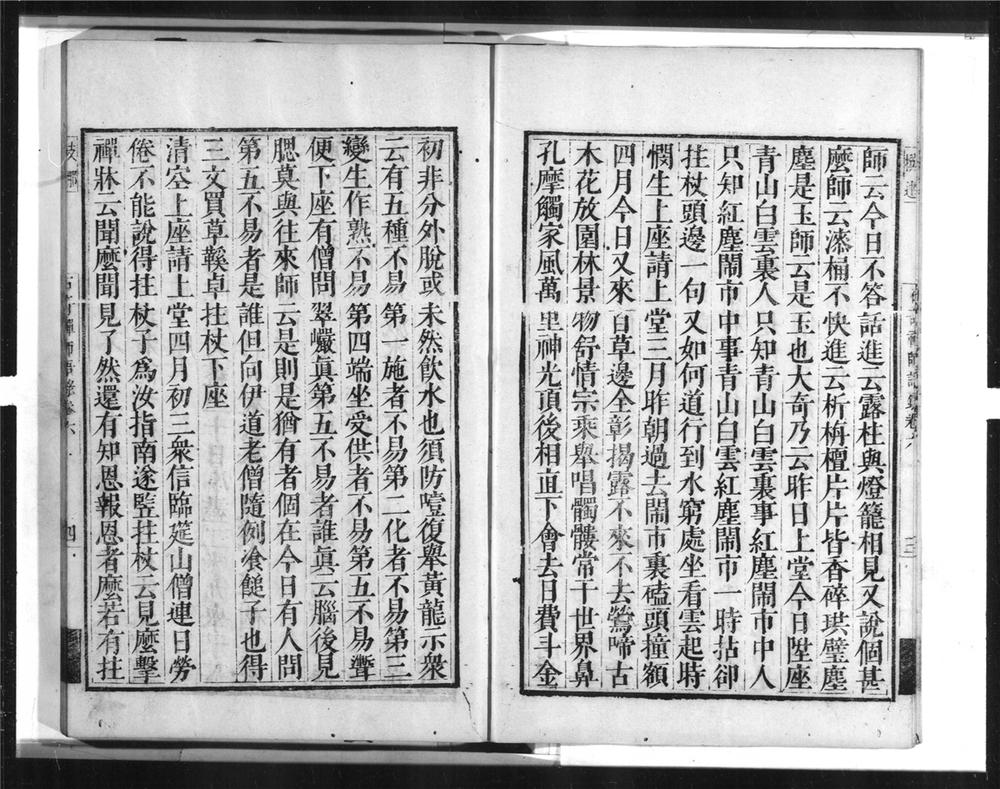 師云今日不答話進云露柱與燈籠相見又說個甚
麼師云漆桶不快進云析栴檀片片皆香碎珙璧塵
塵是玉師云是玉也大奇乃云昨日上堂今日陞座
青山白雲裏人只知青山白雲裏事紅塵鬧市中人
只知紅塵鬧市中事青山白雲紅塵鬧市一時拈卻
拄杖頭邊一句又如何道行到水窮處坐看雲起時
憫生上座請上堂三月昨朝過去鬧市裏磕頭撞額
四月今日又來百草邊全彰揭露不來不去鶯啼古
木花放園林景物舒情宗乘舉唱髑髏常干世界鼻
孔摩觸家風萬里神光頂後相直下會去日費斗金
初非分外脫或未然飲水也須防噎復舉黃龍示衆
云有五種不易第一施者不易第二化者不易第三
變生作熟不易第四端坐受供者不易第五不易聻
便下座有僧問翠巖眞第五不易者誰眞云腦後見
腮莫與往來師云是則是猶有者個在今日有人問
第五不易者是誰但向伊道老僧隨例飡鎚子也得
三文買草鞵卓拄杖下座
清空上座請上堂四月初三衆信臨筵山僧連日勞
倦不能說得拄杖子爲汝指南遂豎拄杖云見麼擊
禪牀云聞麼聞見了然還有知恩報恩者麼若有拄
四